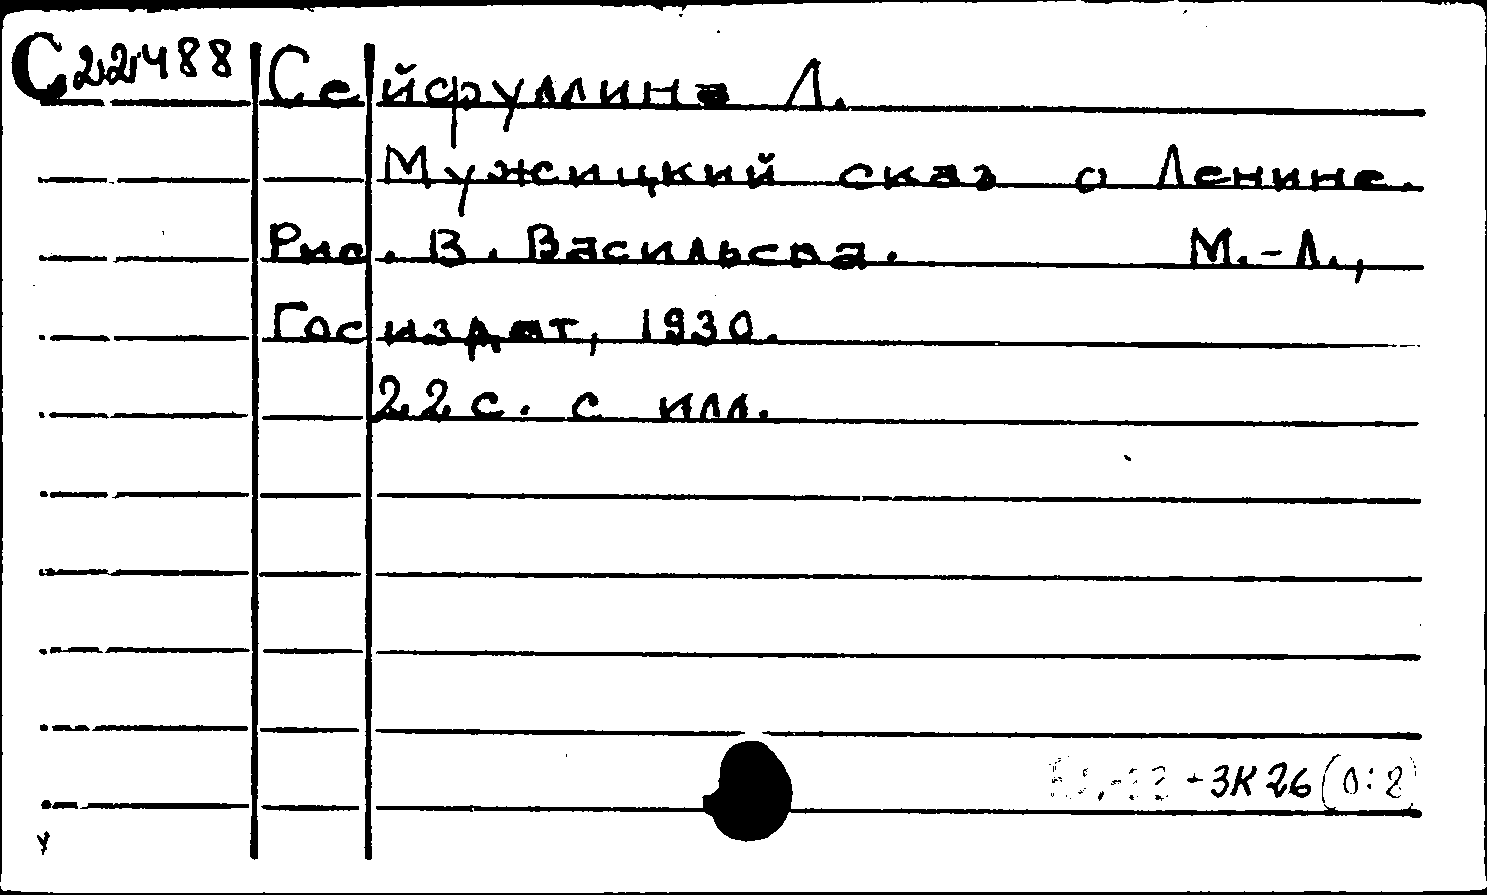 С22488 Сейфуллина Л.
Мужицкий сказ о Ленине.
Рис. В. Васильева. М.-Л.,
Госиздат, 1930.
22 с. с илл.
-3К26(0:8)